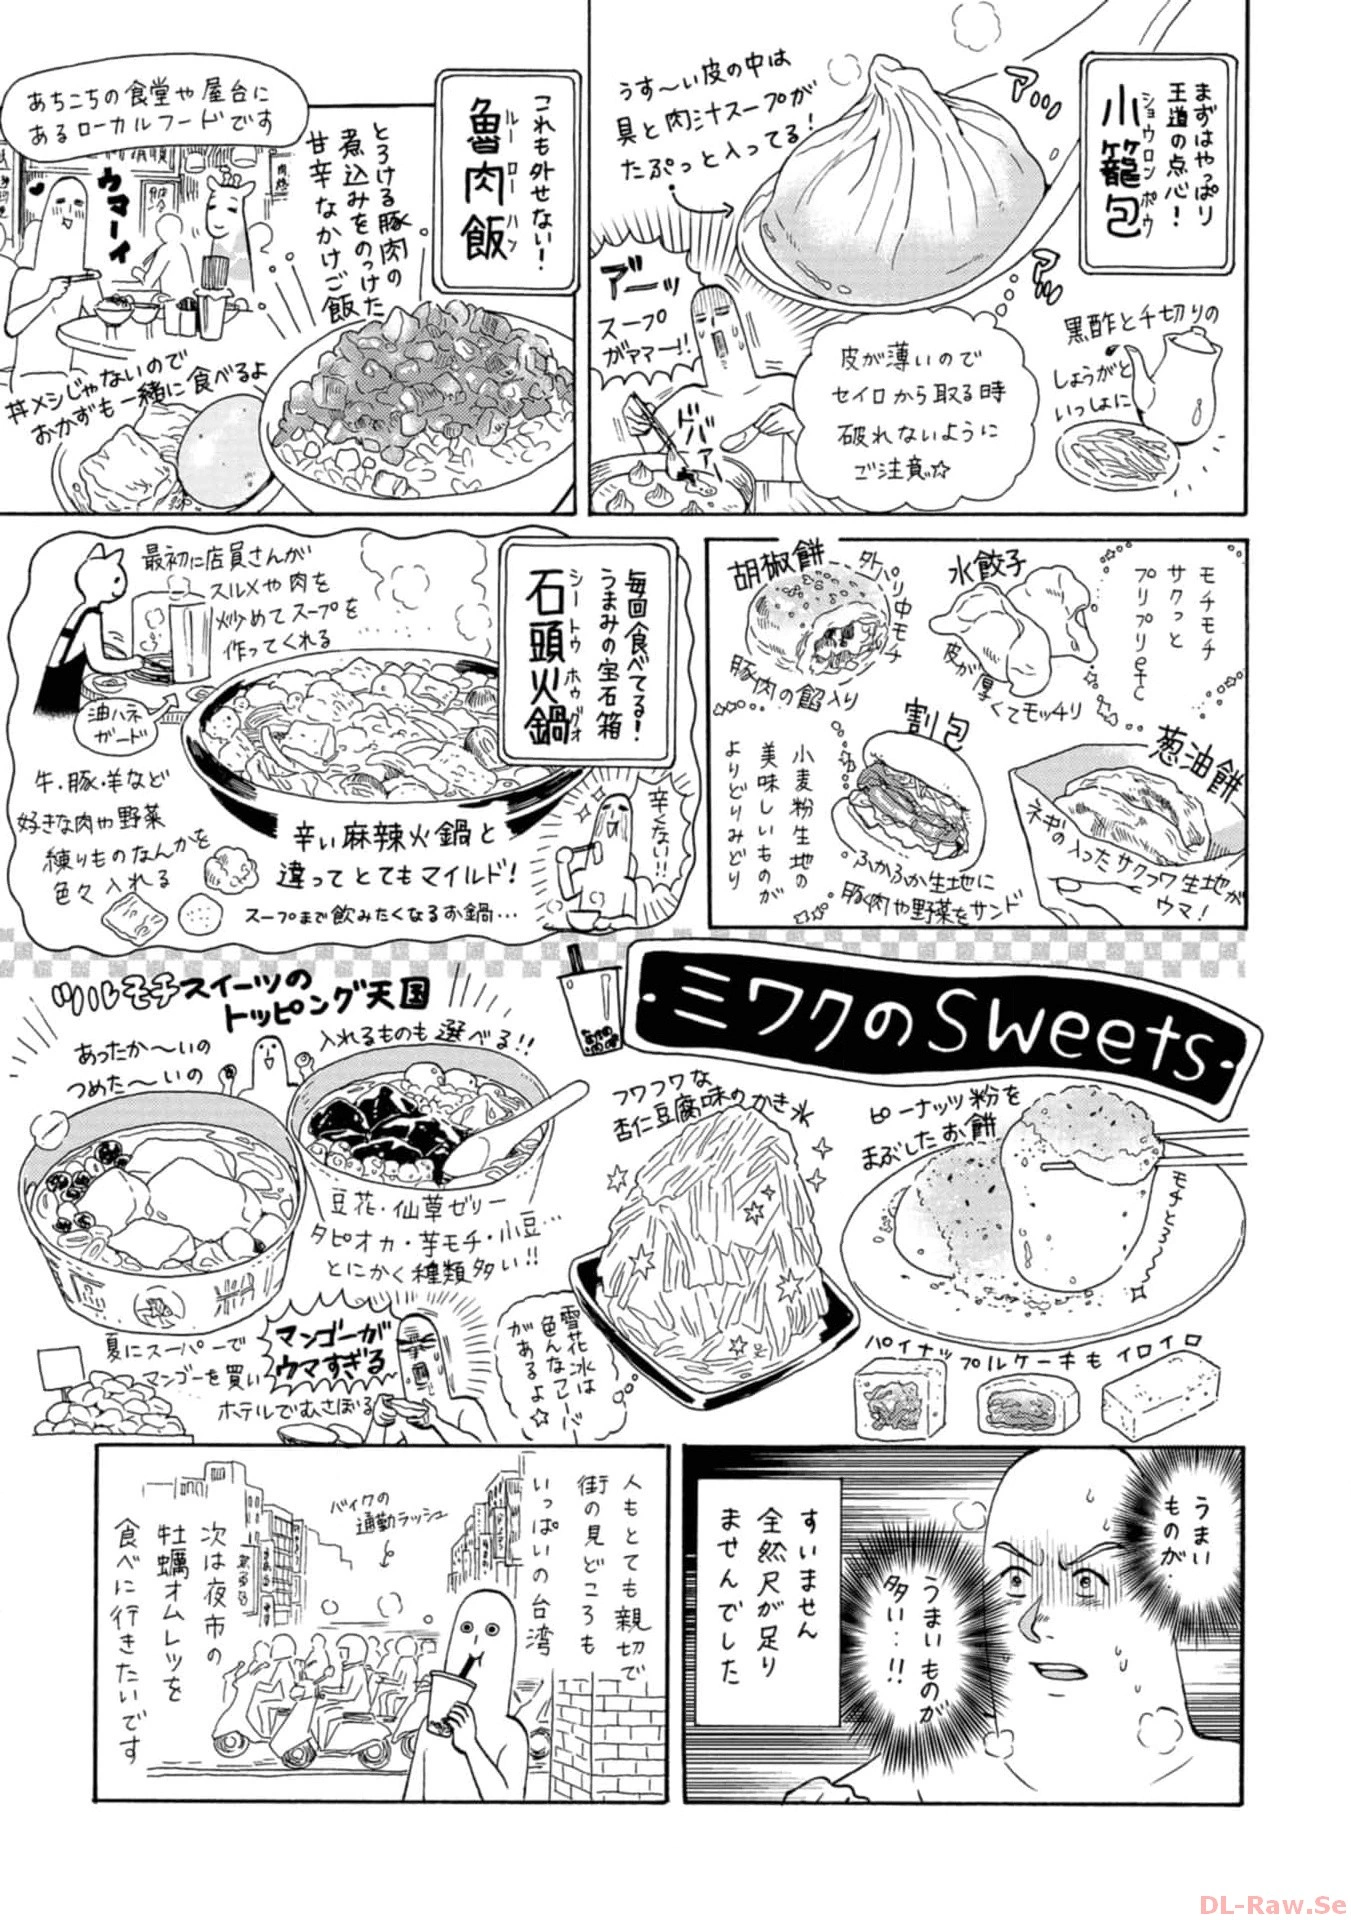 まずはやっぱり
王道の点心！
小籠包
ショウロンポウ
うす〜い皮の中は
具と肉汁スープが
たぷっと入ってる！
アツッ
アツッ
黒酢と千切りの
しょうがと
いっしょに
皮が薄いので
セイロから取る時
破れないように
ご注意☆
アーッ
スープ
がァァー!!
ドバァー
これも外せない！
魯肉飯
ルーローハン
とろける豚肉の
煮込みをのっけた
甘辛なかけご飯
あちこちの食堂や屋台に
あるローカルフードです
ウマーイ
丼メシじゃないので
おかずも一緒に食べるよ
モチモチ
サクっと
プリプリetc
水餃子
皮が厚くてモッチリ
胡椒餅
外パリ中モチ
豚肉の餡入り
葱油餅
ネギの入ったサクフワ生地が
ウマ！
割包
ふかふか生地に
豚肉や野菜をサンド
小麦粉生地の
美味しいものが
よりどりみどり
毎回食べてる！
うまみの宝石箱
石頭火鍋
シートウホゥグオ
最初に店員さんが
スルメや肉を
炒めてスープを
作ってくれる
油ハネ
ガード
牛・豚・羊など
好きな肉や野菜
練りものなんかを
色々入れる
辛い麻辣火鍋と
違ってとてもマイルド！
スープまで飲みたくなるお鍋…
辛くない!!
ミワクのSweets
ピーナッツ粉を
まぶしたお餅
モチと〜
フワフワな
杏仁豆腐味のかき氷
雪花氷は
色んなフレーバー
があるよ☆
パイナップルケーキもイロイロ
ツルモチスイーツの
トッピング天国
入れるものも選べる!!
あったか〜いの
つめた〜いの
豆花・仙草ゼリー
タピオカ・芋モチ・小豆…
とにかく種類多い!!
夏にスーパーで
マンゴーを買い
ホテルでむさぼる
マンゴーが
ウマすぎる
うまい
ものが…
うまいものが
多い…!!
すいません
全然尺が足り
ませんでした
人もとても親切で
街の見どころも
いっぱいの台湾
バイクの
通勤ラッシュ
次は夜市の
牡蠣オムレツを
食べに行きたいです
DL-Raw.Se